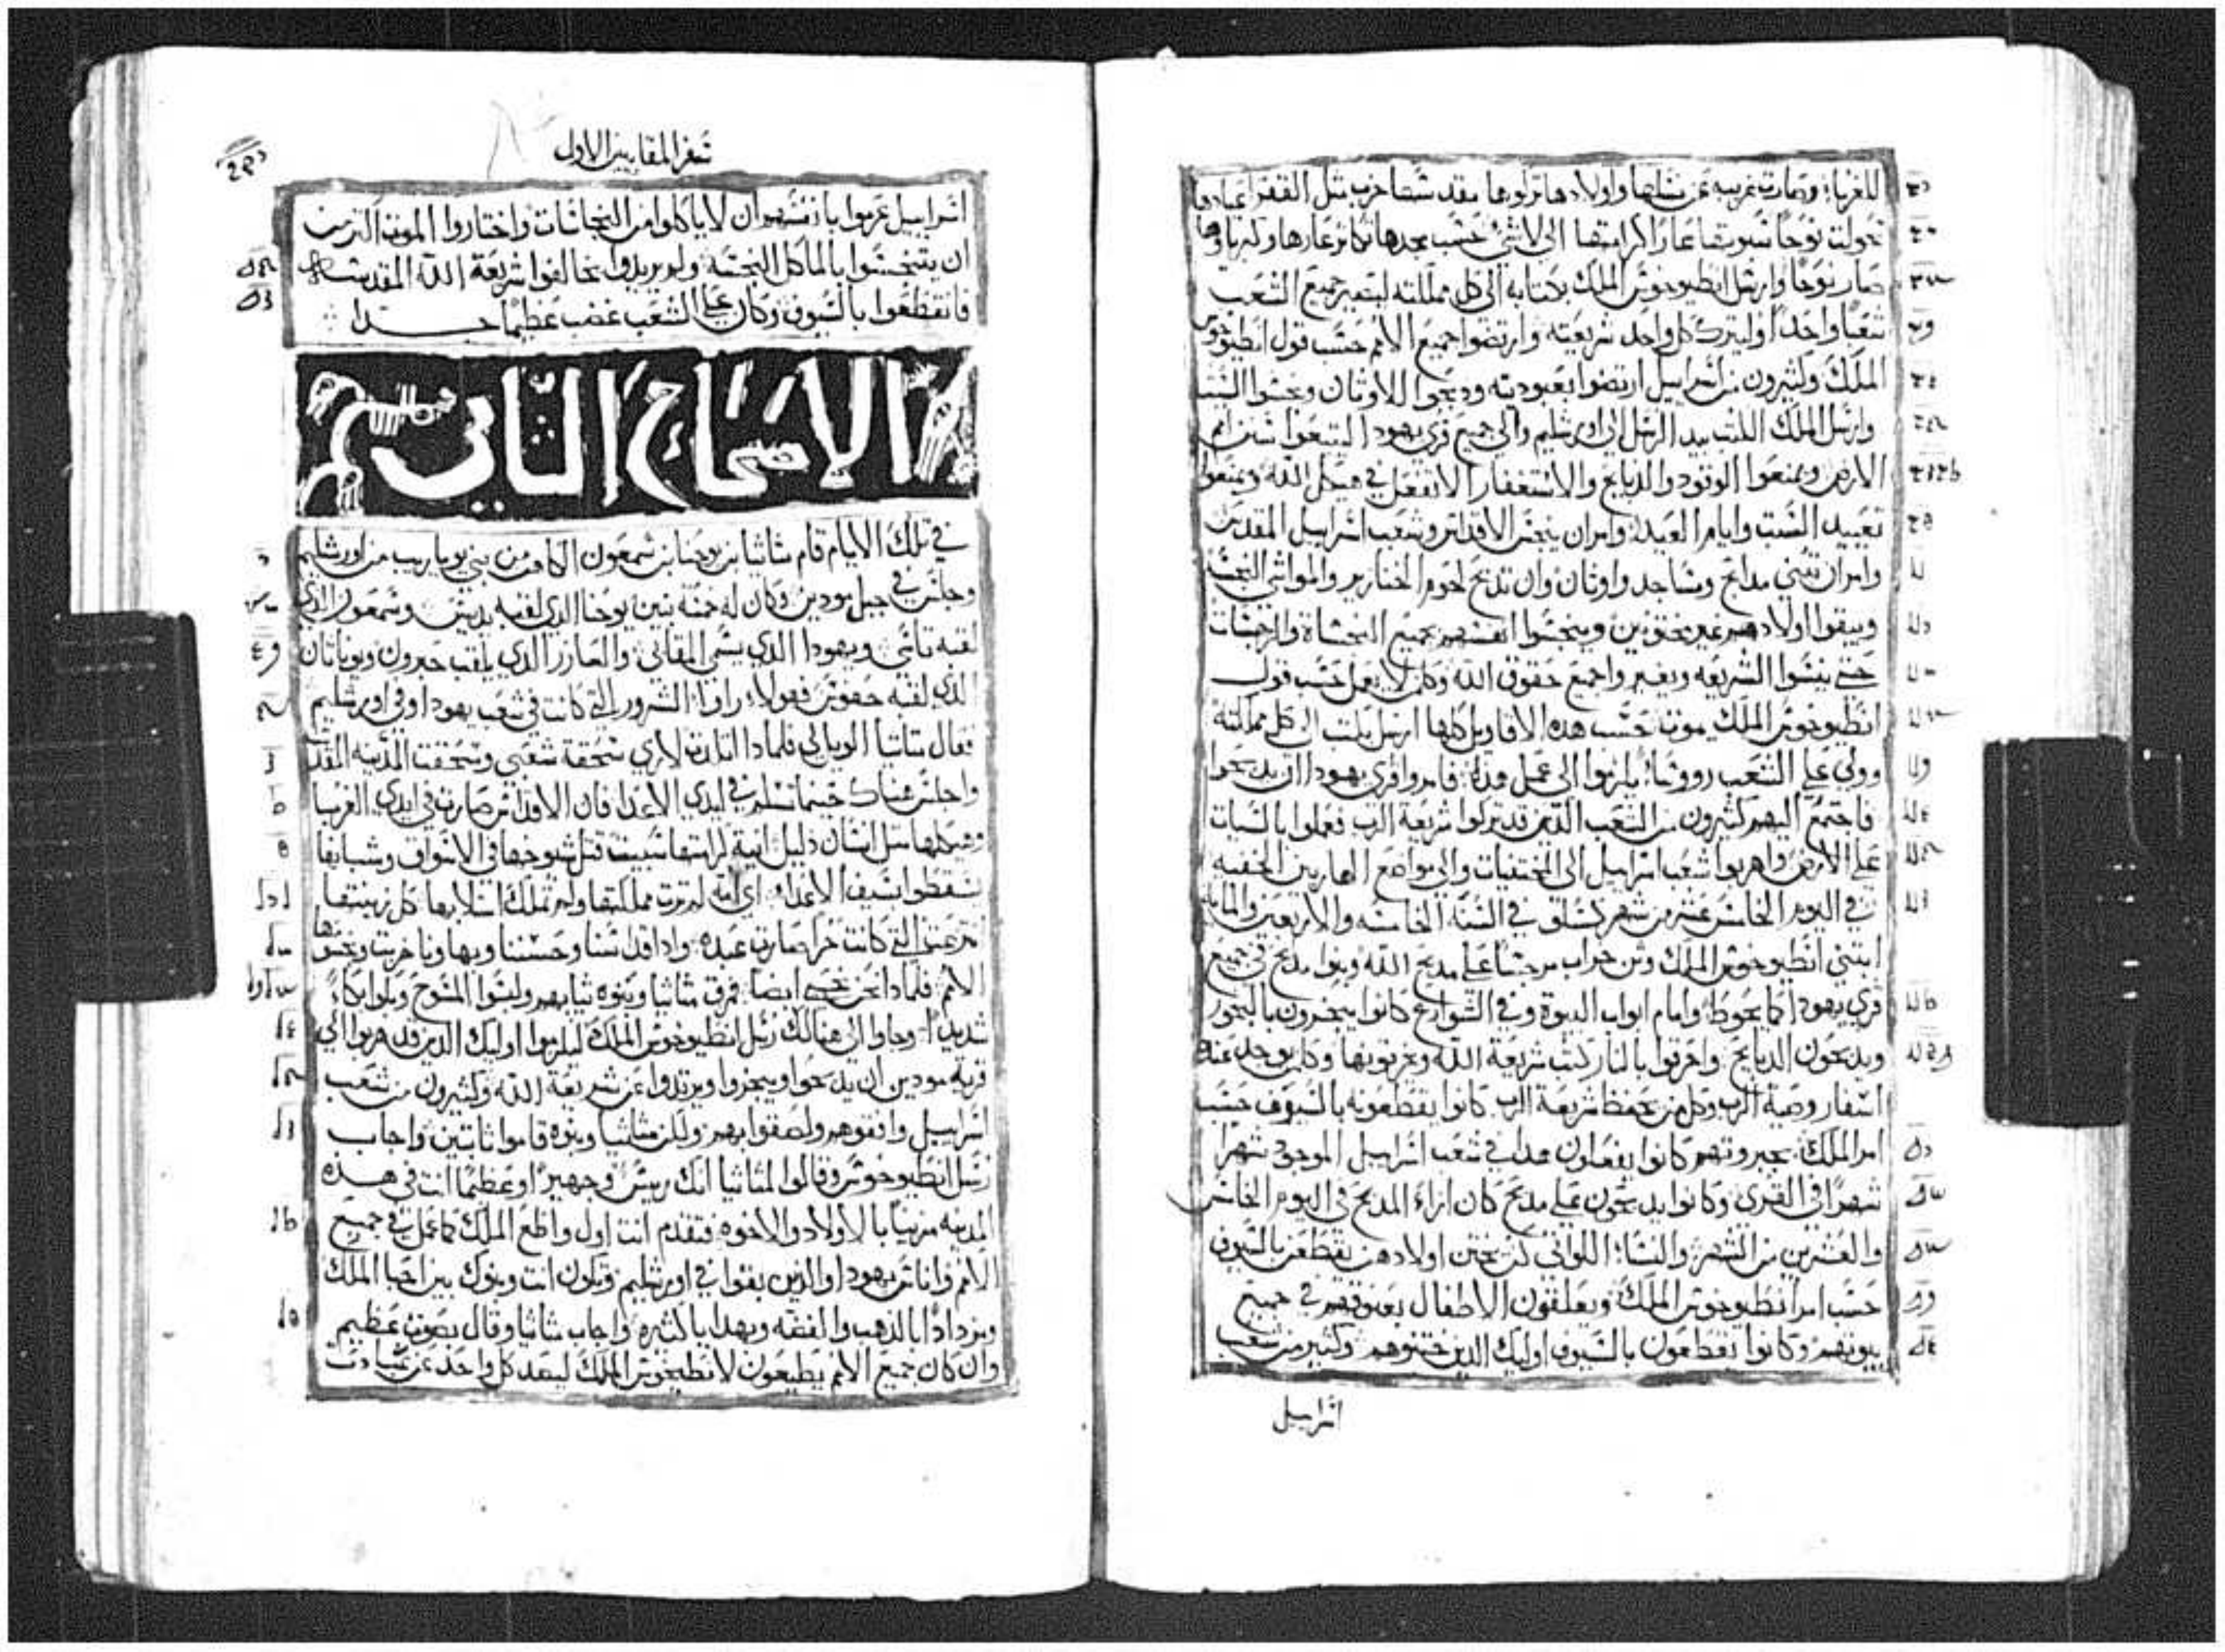 للغرباء وصارت غريبه عن نسلها واولادها تركوها مقدسها خرب مثل القفر اعيادها
تحولت نوحًا سبوتها عارًا كرامتها الى لا شئ حسب مجدها تكاثر عارها وكبرياوها
صار نوحًا وارسل انطيوخوس الملك بكتابه الى كل مملكته ليصير جميع الشعب
شعبًا واحدًا وليترك كل واحد شريعته وارتضوا جميع الامم حسب قول انطيوخوس
الملك وكثيرون من اسراييل ارتضوا بعبوديته ودبحوا للاوثان ونجسوا السبت
وارسل الملك الكتب بيد الرسل الى اورشليم والى جميع قرى يهودا ليتبعوا سنن امم
الارض ويمنعوا الوقود والدبايح والاستغفار الا تفعل في هيكل الله ويمنعوا
تعييد السبت وايام العيد وامر ان ينجس الاقداس وشعب اسراييل المقدس
وامر ان تبنى مدابح ومساجد واوثان وان تدبح لحوم الخنازير والمواشي النجسه
ويبقوا اولادهم غير مختونين وينجسوا انفسهم بجميع النجساة والرجسات
حتى ينسوا الشريعه ويغيروا جميع حقوق الله وكل من لا يعمل حسب قول
انطيوخوس الملك يموت حسب هده الاقاويل كلها ارسل يكتب الى كل مملكته
وولى على الشعب رووسًا يلزموا الى عمل هدا فامروا قرى يهودا ان يدبحوا
فاجتمع اليهم كثيرون من الشعب الدين قد تركوا شريعة الرب فعملوا بالسيات
على الارض واهربوا شعب اسراييل الى المختفيات والى مواضع الهاربين الخفيه
في اليوم الخامس عشر من شهر كسلو في السنة الخامسه والاربعين والمايه
ابتنى انطيوخوس الملك وثن خراب مرجسًا على مدبح الله وبنوا مدبح في جميع
قرى يهودا كما يحوط وامام ابواب البيوة وفي الشوارع كانوا يبخرون بالبخور
ويدبحون الدبايح واحرقوا بالنار كتب شريعة الله ومزقوها وكل من يوجد عنده
اسفار وصية الرب وكل من يحفظ شريعة الرب كانوا يقطعونه بالسيوف حسب
امر الملك بجبروتهم كانوا يفعلون هدا في شعب اسراييل الموجود شهرًا
شهرًا في القرى وكانوا يدبحون على مدبح كان ازاء المدبح في اليوم الخامس
والعشرين من الشهر والنساء اللواتي كن يختن اولادهن تقطعن بالسيوف
حسب امر انطيوخوس الملك ويعلقون الاطفال بعنوقهم في جميع
بيوتهم وكانوا يقطعون بالسيوف اوليك الدين ختنوهم وكثير من شعب
اسراييل
سفر المقابيين الاول
اسراييل عزموا بانفسهم ان لا ياكلوا من النجاسات واختاروا الموت اكثر من
ان يتنجسوا بالماكل النجسه ولم يريدوا يخالفوا شريعة الله المقدسه
فانقطعوا بالسيوف وكان على الشعب غضب عظيمًا جدا
الاصحاح الثاني
في تلك الايام قام متاثيا بن يوحنا بن شمعون الكاهن من بني يوياريب من اورشليم
وجلس في جبل مودين وكان له خمسة بنين يوحنا الدي لقبه يديس وشمعون الدي
لقبه تاسي ويهودا الدي يسمى المقابي والعازر الدي يلقب حبرون ويوناتان
الدي لقبه حفوس فهولاء راوا الشرور التي كانت في شعب يهودا وفي اورشليم
فقال متاثيا الويل لي فلمادا اتلدت لارى سحقة شعبي وسحقت المدينه المقدسه
واجلس هناك حينما تسلم في ايدي الاعدا فان الاقداس صارت في ايدي الغربا
وهيكلها مثل انسان دليل انية كرامتها سبيت قتل شيوخها في الاسواق وشبابها
سقطوا بسيف الاعداء اي امة لم ترت مملكتها ولم تملك اسلابها كل زينتها
نزعت التي كانت حرا صارت عبده وادا اقداسنا وحسننا وبهاونا خربت ونجسوها
الامم فلمادا نحن نحيى ايضا فمزق متاثيا وبنوه ثيابهم ولبسوا المسوح وبكوا بكاءً
شديدًا وجاوا الى هنالك رسل انطيوخوس الملك ليلزموا اوليك الدين قد هربوا الى
قرية مودين ان يدبحوا ويبخروا ويرتدوا عن شريعة الله وكثيرون من شعب
اسراييل وافقوهم ولصقوا بهم ولكن متاثيا وبنوه قاموا ثابتين واجاب
رسل انطيوخوس وقالوا لمتاثيا انك رييس وجهيرًا وعظيمًا انت في هده
المدينه مزينًا بالاولاد والاخوه فتقدم انت اول واطع الملك كما عمل في جميع
الامم واناس يهودا والدين بقوا في اورشليم وتكون انت وبنوك بين احبا الملك
وتزدادًا بالدهب والفضه وبهدايا كثيره واجاب متاثيا وقال بصوت عظيم
وان كان جميع الامم يطيعون لانطيخوس الملك ليبعد كل واحد عن عبادت